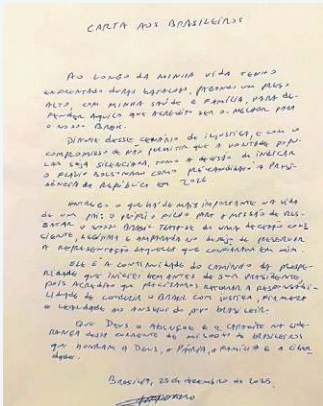 CARTA AOS BRASILEIROS
AO LONGO DA MINHA VIDA TENHO
ENFRENTADO DURAS BATALHAS, PAGANDO UM PREÇO
ALTO, COM MINHA SAÚDE E FAMÍLIA, PARA DE-
FENDER AQUILO QUE ACREDITO SER O MELHOR PARA
O NOSSO BRASIL.
DIANTE DESSE CENÁRIO DE INJUSTIÇA, E COM O
COMPROMISSO DE NÃO PERMITIR QUE A VONTADE POPU-
LAR SEJA SILENCIADA, TOMO A DECISÃO DE INDICAR
O FLÁVIO BOLSONARO COMO PRÉ-CANDIDATO À PRESI-
DÊNCIA DA REPÚBLICA EM 2026
ENTREGO O QUE HÁ DE MAIS IMPORTANTE NA VIDA
DE UM PAI: O PRÓPRIO FILHO PARA A MISSÃO DE RES-
GATAR O NOSSO BRASIL. TRATA-SE DE UMA DECISÃO CONS-
CIENTE, LEGÍTIMA E AMPARADA NO DESEJO DE PRESERVAR
A REPRESENTAÇÃO DAQUELES QUE CONFIARAM EM MIM.
ELE É A CONTINUIDADE DO CAMINHO DA PROSPE-
RIDADE QUE INICIEI BEM ANTES DE SER PRESIDENTE,
POIS ACREDITO QUE PRECISAMOS RETOMAR A RESPONSABI-
LIDADE DE CONDUZIR O BRASIL COM JUSTIÇA, FIRMEZA
E LEALDADE AOS ANSEIOS DO POVO BRASILEIRO.
QUE DEUS O ABENÇOE E O CAPACITE NA LIDE-
RANÇA DESSA CORRENTE DE MILHÕES DE BRASILEIROS
QUE HONRAM A DEUS, A PÁTRIA, A FAMÍLIA E A LIBER-
DADE.
BRASÍLIA, 25 DEZEMBRO DE 2025.